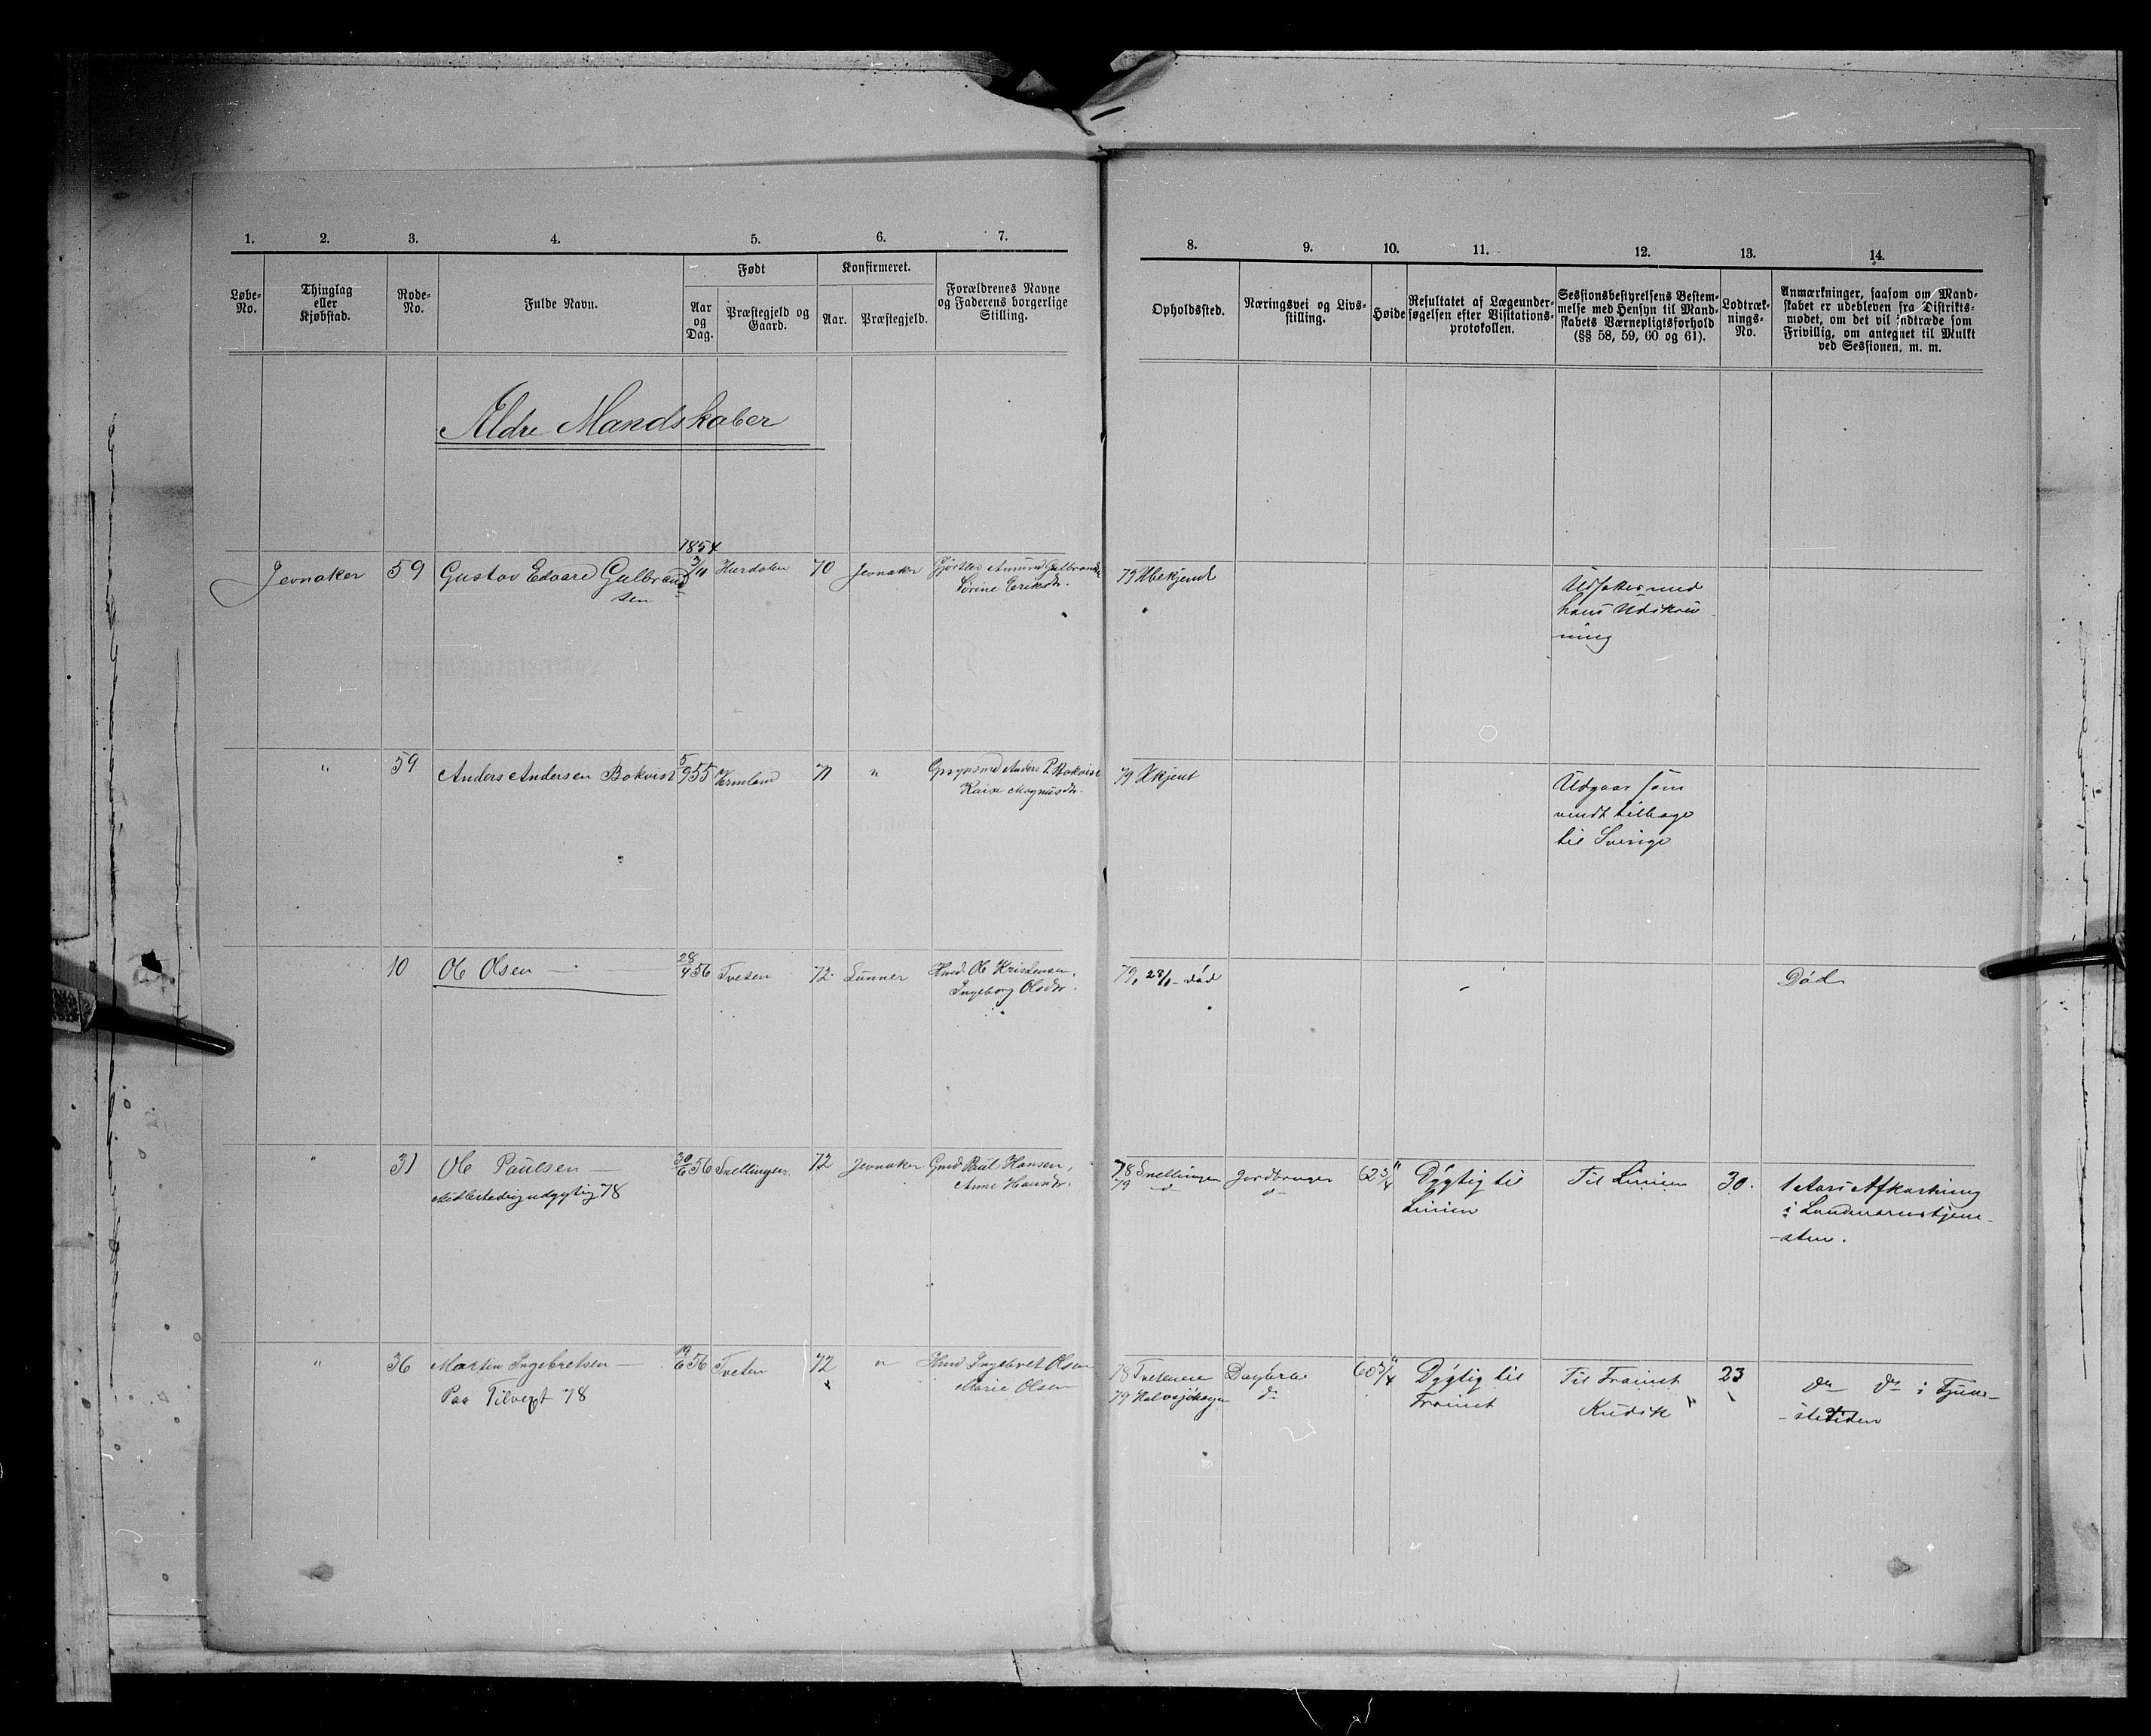 1. 2. 3. 4. 5. 6. 7. 8. 9. 10. 11. 12. 13. 14.
Løbe-No.
Thinglag eller Kjøbstad.
Rode-No.
Fulde Navn.
Født
Aar og Dag.
Præstegjeld og Gaard.
Konfirmeret.
Aar.
Præstegjeld.
Forældrenes Navne og Faderens borgerlige Stilling.
Opholdssted.
Næringsvei og Livsstilling.
Høide
Resultatet af Lægeundersøgelsen efter Visitationsprotokollen.
Sessionsbestyrelsens Bestemmelse med Hensyn til Mandskabets Værnepligtsforhold (§§ 58, 59, 60 og 61).
Lodtræknings-No.
Anmærkninger, saasom om Mandskabet er udebleven fra Distriktsmødet, om det vil indtræde som Frivillig, om antegnet til Mulkt ved Sessionen, m. m.
Ældre Mandskaber
1854
Jevnaker 59 Gustav Edvard Gulbrand 3/10 Hurdalen 70 Jevnaker Amund Gulbrands 79 Ubekjendt
sen Sørine Eriksdr. Udsættes med
hans Udskriv
ning
" 59 Anders Andersen Bokvist 5/9 55 Vermland 71 " Anders P. Bokvist 79 Ukjent Udgaar som
Kaisa Magnusdr. vendt tilbage
til Sverige
10 Ole Olsen 28/4 56 Tveten 72 Lunner Hmd. Ole Kristensen, 79, 28/1 - død Død
Ingeborg Olsdr.
" 31 Ole Paulsen 30/6 56 Snellingen 72 Jevnaker Gmd. Paul Hansen, 78 Snellingen Jordbruger 62 3/4" Dygtig til Til Linien 30. 1 Aars Afkortning
Midlertidig udygtig 78 Anne Hansdr. 79 d d Linien i Landværnstjene-
-sten.
" 36 Martin Ingebretsen 19/6 56 Tveten 72 " Hmd Ingebret Olsen 78 Tvetene 60 3/4" Dygtig til Til Trainet 23 do do i Tjene-
Paa Tilvext 78 Marie Olsen 79 do Trainet Kudsk " -stetiden